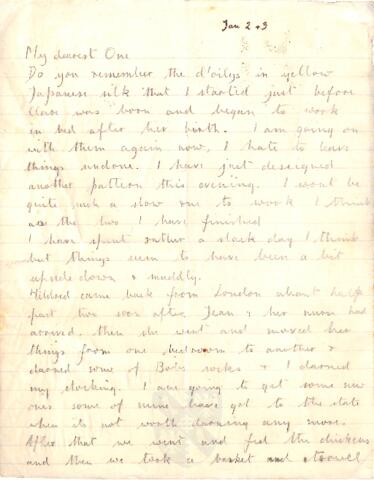 Jan 2 & 3
My dearest One
Do you remember the d'oilys in yellow
Japanese silk that I started just before
Clare was born and began to work
in bed after her birth. I am going on
with them again now, I hate to leave
things undone. I have just desegned
another pattern this evening. I wont be
quite such a slow one to work I think
as the two I have finished
I have spent rather a slack day I think
but things seem to have been a bit
upside down & muddly.
came back from London about half
past two soon after Jean & her nurse had
arrived, then she went and moved her
things from one bedroom to another &
darned some of Bobs socks & I darned
my stocking. I am going to get some new
ones some of mine have got to the state
when its not worth darning any more.
After that we went and fed the chickens
and then we took a basket and trowel